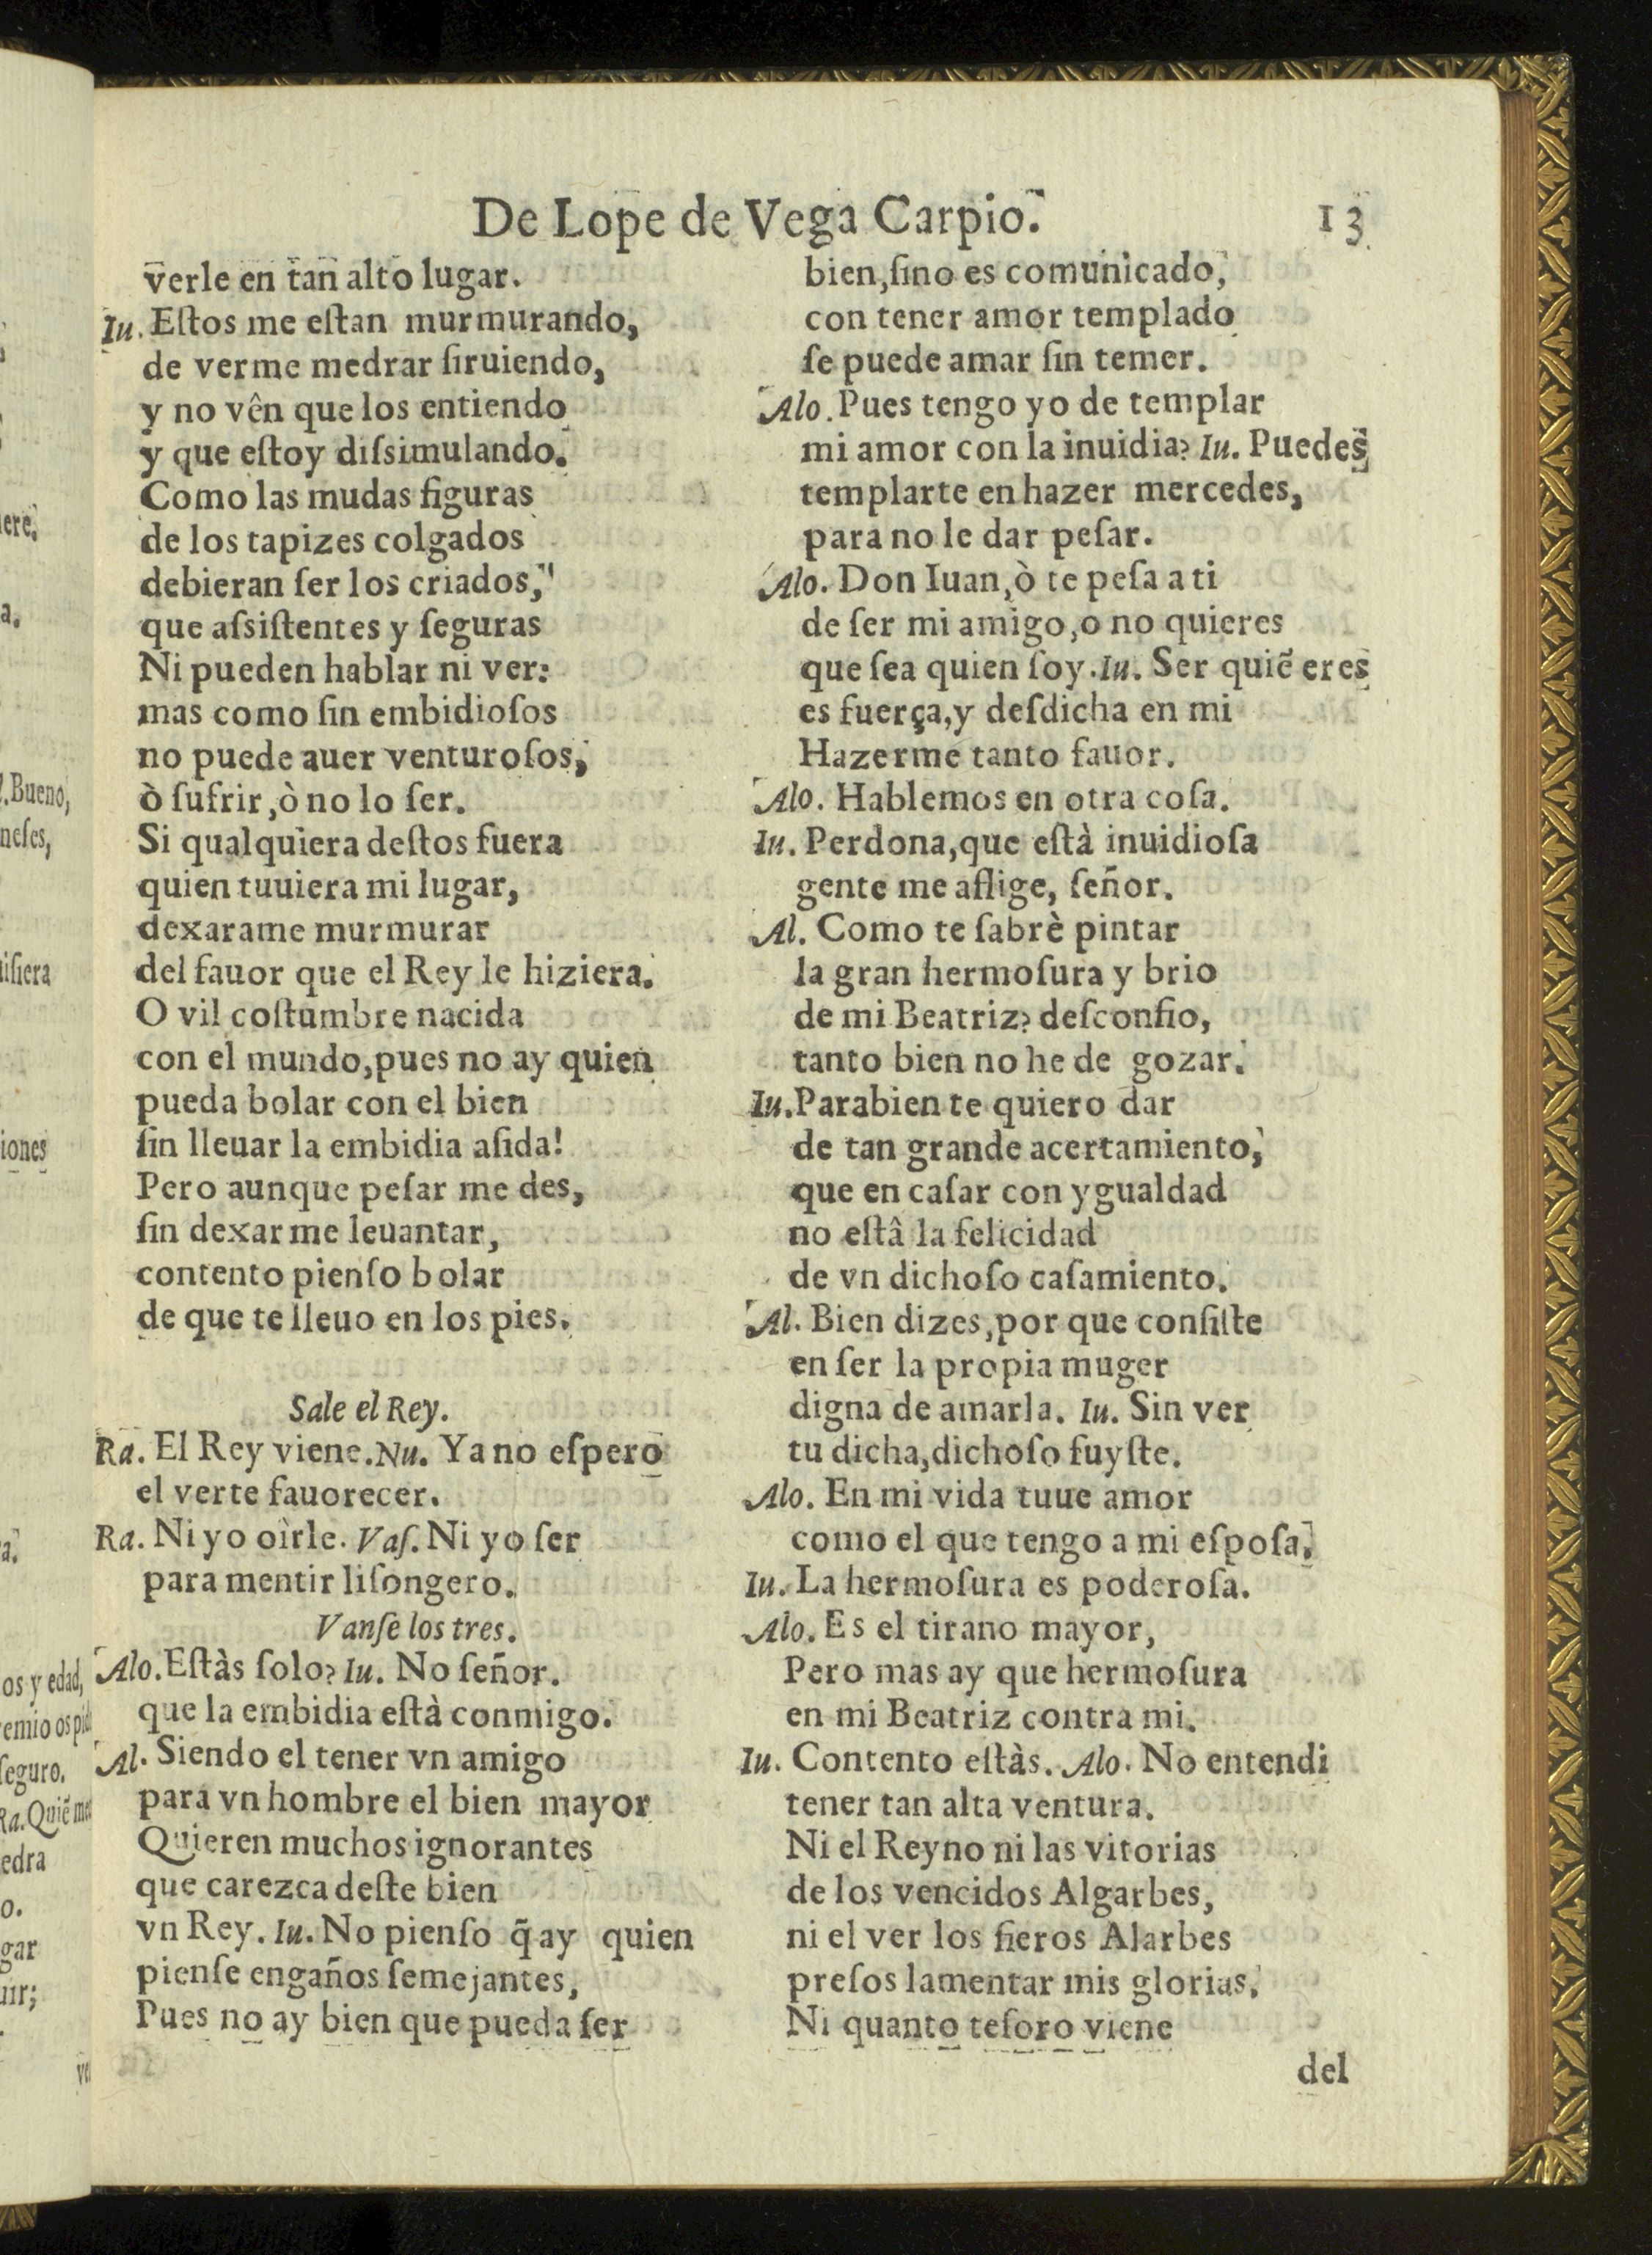 De Lope de Vega Carpio.
13
verle en tan alto lugar.
Iu. Eſtos me eſtan murmurando,
de verme medrar ſiruiendo,
y no vên que los entiendo
y que eſtoy diſsimulando.
Como las mudas figuras
de los tapizes colgados
debieran ſer los criados,
que aſsiſtentes y ſeguras
Ni pueden hablar ni ver:
mas como ſin embidioſos
no puede auer venturoſos,
ò ſufrir, ò no lo ſer.
Si qualquiera deſtos fuera
quien tuuiera mi lugar,
dexarame murmurar
del fauor que el Rey le hiziera.
O vil coſtumbre nacida
con el mundo, pues no ay quien
pueda bolar con el bien
ſin lleuar la embidia aſida!
Pero aunque peſar me des,
ſin dexarme leuantar,
contento pienſo bolar
de que te lleuo en los pies.
Sale el Rey.
Ra. El Rey viene. Nu. Ya no eſpero
el verte fauorecer.
Ra. Ni yo oìrle. Vaſ. Ni yo ſer
para mentir liſongero.
Vanſe los tres.
Alo. Eſtàs ſolo? Iu. No ſeñor.
que la embidia eſtà conmigo.
Al. Siendo el tener vn amigo
para vn hombre el bien mayor
Quieren muchos ignorantes
que carezca deſte bien
vn Rey. Iu. No pienſo q̃ ay quien
pienſe engaños ſemejantes,
Pues no ay bien que pueda ſer
bien, ſino es comunicado,
con tener amor templado
ſe puede amar ſin temer.
Alo. Pues tengo yo de templar
mi amor con la inuidia? Iu. Puedes
templarte en hazer mercedes,
para no le dar peſar.
Alo. Don Iuan, ò te peſa a ti
de ſer mi amigo, o no quieres
que ſea quien ſoy. Iu. Ser quiẽ eres
es fuerça, y deſdicha en mi
Hazerme tanto fauor.
Alo. Hablemos en otra coſa.
Iu. Perdona, que eſtà inuidioſa
gente me aflige, ſeñor.
Al. Como te ſabrè pintar
la gran hermoſura y brio
de mi Beatriz? deſconfio,
tanto bien no he de gozar.
Iu. Parabien te quiero dar
de tan grande acertamiento,
que en caſar con ygualdad
no eſtâ la felicidad
de vn dichoſo caſamiento.
Al. Bien dizes, por que conſiſte
en ſer la propia muger
digna de amarla. Iu. Sin ver
tu dicha, dichoſo fuyſte.
Alo. En mi vida tuue amor
como el que tengo a mi eſpoſa.
Iu. La hermoſura es poderoſa.
Alo. Es el tirano mayor,
Pero mas ay que hermoſura
en mi Beatriz contra mi.
Iu. Contento eſtàs. Alo. No entendi
tener tan alta ventura.
Ni el Reyno ni las vitorias
de los vencidos Algarbes,
ni el ver los fieros Alarbes
preſos lamentar mis glorias.
Ni quanto teſoro viene
del